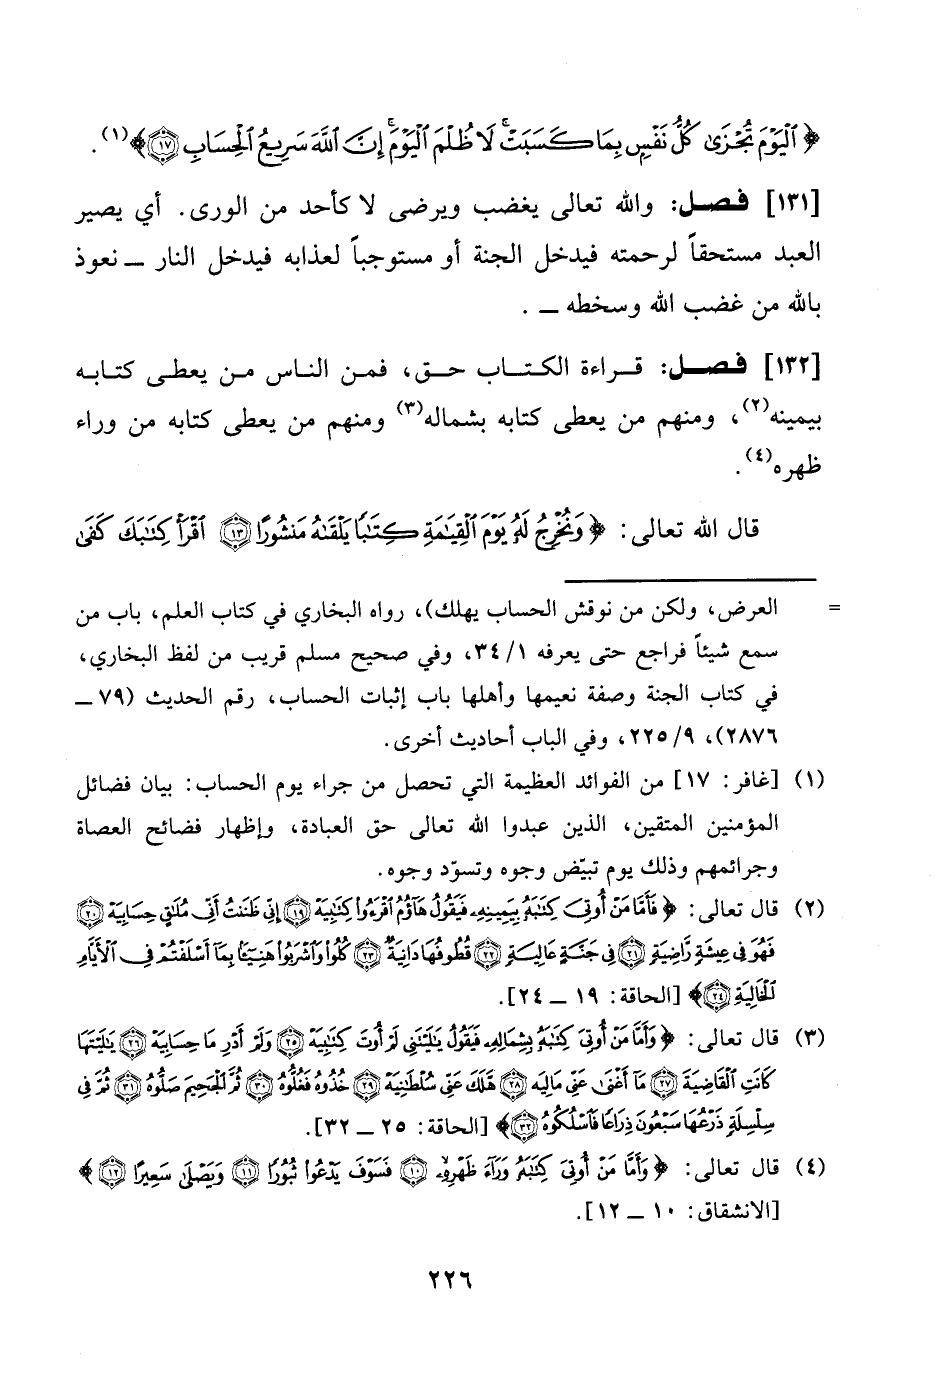 ﴿ ٱلْيَوْمَ تُجْزَىٰ كُلُّ نَفْسٍۭ بِمَا كَسَبَتْ ۚ لَا ظُلْمَ ٱلْيَوْمَ ۚ إِنَّ ٱللَّهَ سَرِيعُ ٱلْحِسَابِ ١٧﴾(١).
[١٣١] فصل: والله تعالى يغضب ويرضى لا كأحد من الورى. أي يصير
العبد مستحقاً لرحمته فيدخل الجنة أو مستوجباً لعذابه فيدخل النار ــ نعوذ
بالله من غضب الله وسخطه ــ .
[١٣٢] فصل: قراءة الكتاب حق، فمن الناس من يعطى كتابه
بيمينه(٢)، ومنهم من يعطى كتابه بشماله(٣) ومنهم من يعطى كتابه من وراء
ظهره(٤).
قال الله تعالى: ﴿ وَنُخْرِجُ لَهُۥ يَوْمَ ٱلْقِيَٰمَةِ كِتَٰبًا يَلْقَىٰهُ مَنشُورًا ١٣ ٱقْرَأْ كِتَٰبَكَ كَفَىٰ
= العرض، ولكن من نوقش الحساب يهلك)، رواه البخاري في كتاب العلم، باب من
سمع شيئاً فراجع حتى يعرفه ٣٤/١، وفي صحيح مسلم قريب من لفظ البخاري،
في كتاب الجنة وصفة نعيمها وأهلها باب إثبات الحساب، رقم الحديث (٧٩ ــ
٢٨٧٦)، ٢٢٥/٩، وفي الباب أحاديث أخرى.
(١) [غافر: ١٧] من الفوائد العظيمة التي تحصل من جراء يوم الحساب: بيان فضائل
المؤمنين المتقين، الذين عبدوا الله تعالى حق العبادة، وإظهار فضائح العصاة
وجرائمهم وذلك يوم تبيّض وجوه وتسوّد وجوه.
(٢) قال تعالى: ﴿ فَأَمَّا مَنْ أُوتِىَ كِتَٰبَهُۥ بِيَمِينِهِۦ فَيَقُولُ هَآؤُمُ ٱقْرَءُوا۟ كِتَٰبِيَهْ ١٩ إِنِّى ظَنَنتُ أَنِّى مُلَٰقٍ حِسَابِيَهْ ٢٠
فَهُوَ فِى عِيشَةٍ رَّاضِيَةٍ ٢١ فِى جَنَّةٍ عَالِيَةٍ ٢٢ قُطُوفُهَا دَانِيَةٌ ٢٣ كُلُوا۟ وَٱشْرَبُوا۟ هَنِيٓـًٔۢا بِمَآ أَسْلَفْتُمْ فِى ٱلْأَيَّامِ
ٱلْخَالِيَةِ ٢٤﴾ [الحاقة: ١٩ ــ ٢٤].
(٣) قال تعالى: ﴿ وَأَمَّا مَنْ أُوتِىَ كِتَٰبَهُۥ بِشِمَالِهِۦ فَيَقُولُ يَٰلَيْتَنِى لَمْ أُوتَ كِتَٰبِيَهْ ٢٥ وَلَمْ أَدْرِ مَا حِسَابِيَهْ ٢٦ يَٰلَيْتَهَا
كَانَتِ ٱلْقَاضِيَةَ ٢٧ مَآ أَغْنَىٰ عَنِّى مَالِيَهْ ٢٨ هَلَكَ عَنِّى سُلْطَٰنِيَهْ ٢٩ خُذُوهُ فَغُلُّوهُ ٣٠ ثُمَّ ٱلْجَحِيمَ صَلُّوهُ ٣١ ثُمَّ فِى
سِلْسِلَةٍ ذَرْعُهَا سَبْعُونَ ذِرَاعًا فَٱسْلُكُوهُ ٣٢﴾ [الحاقة: ٢٥ ــ ٣٢].
(٤) قال تعالى: ﴿ وَأَمَّا مَنْ أُوتِىَ كِتَٰبَهُۥ وَرَآءَ ظَهْرِهِۦ ١٠ فَسَوْفَ يَدْعُوا۟ ثُبُورًا ١١ وَيَصْلَىٰ سَعِيرًا ١٢ ﴾
[الانشقاق: ١٠ ــ ١٢].
٢٢٦